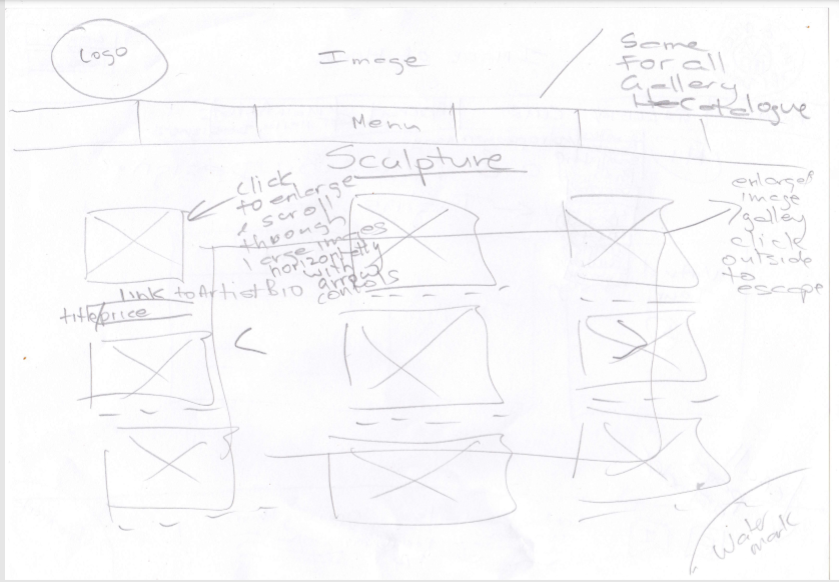 Logo
Image
Same
For all
Gallery
Catalogue
Menu
Sculpture
click
to enlarge
& scroll
through
large images
horizontally
with
arrow
contols
enlarge
image
galley
click
outside
to
escape
link to Artist Bio
title/price
<
>
Water
mark